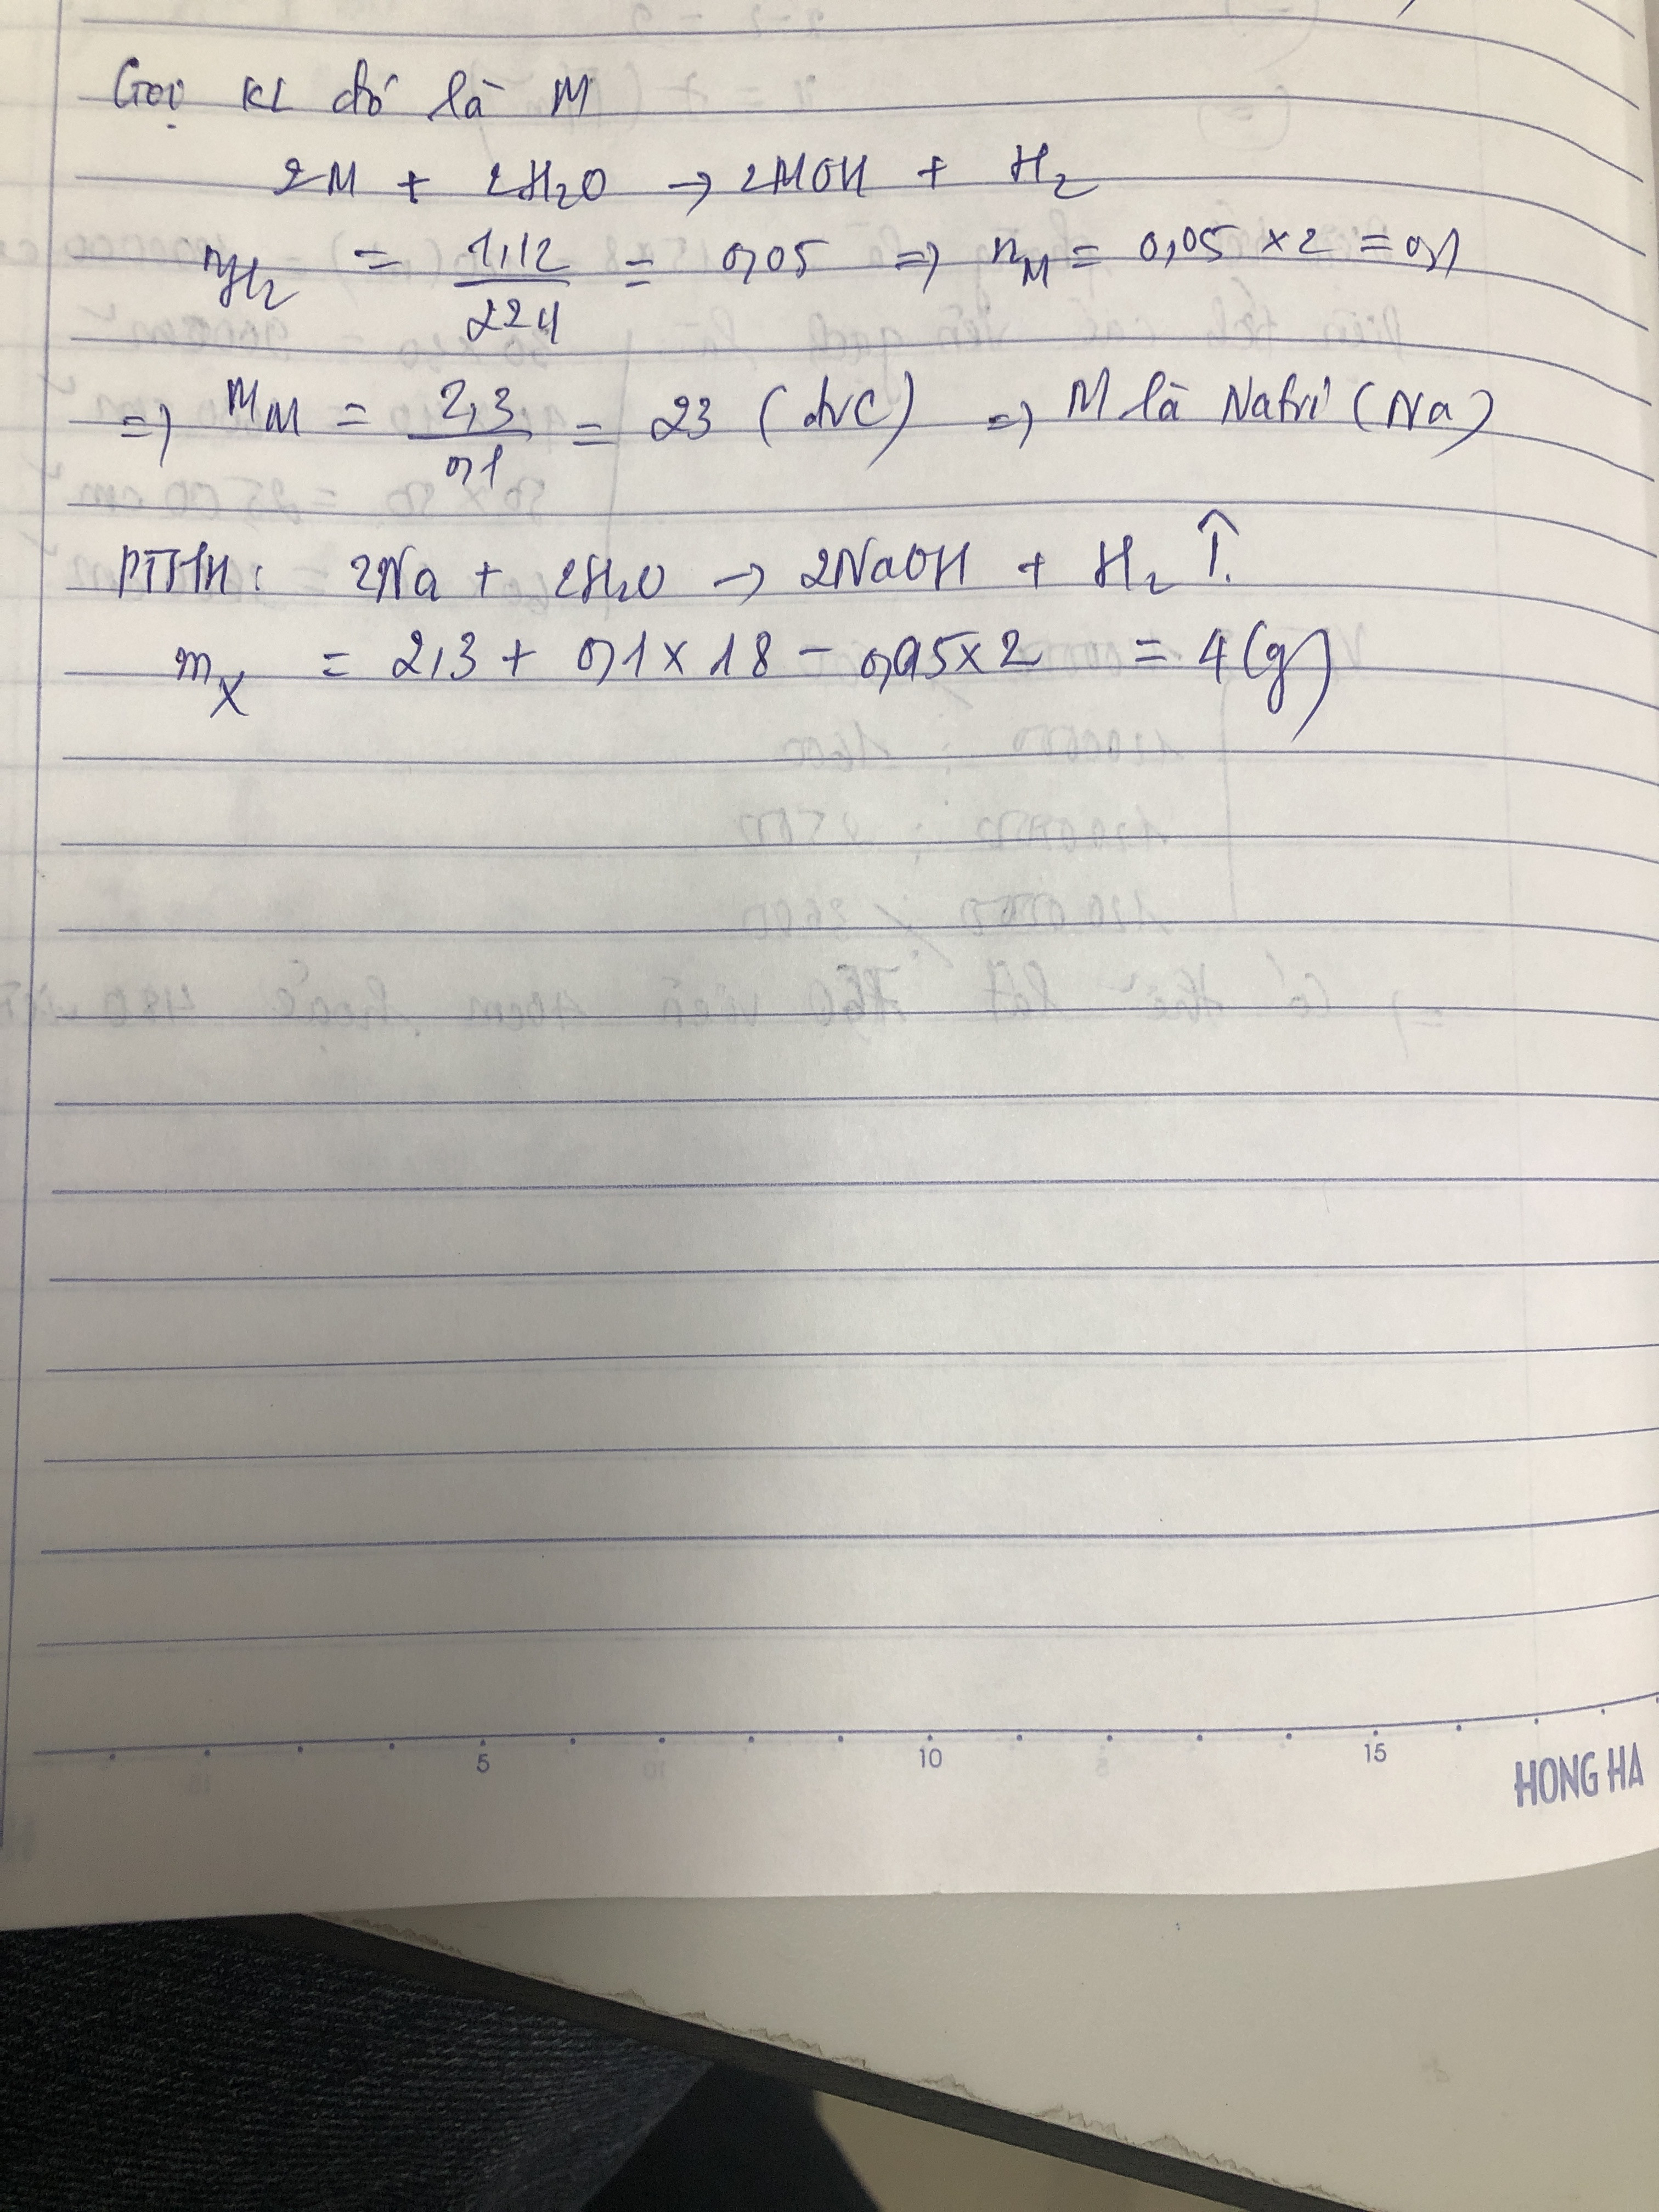 Gọi KL đó là M
2M + 2H₂O → 2MOH + H₂
nH₂ = 1,12/22,4 = 0,05 => nM = 0,05 × 2 = 0,1
=> MM = 2,3/0,1 = 23 (đvC) => M là Natri (Na)
PTHH: 2Na + 2H₂O → 2NaOH + H₂ ↑.
mX = 2,3 + 0,1 × 18 - 0,05 × 2 = 4 (g)
5 10 15
HONG HA